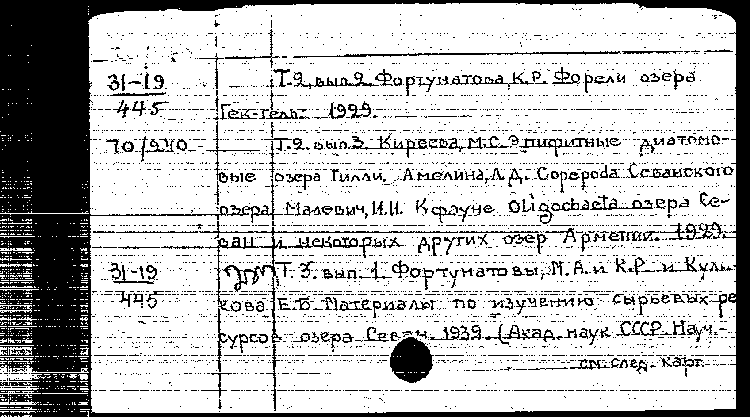 31-19 Т.2, вып.2. Фортунатова, К.Р. Форели озера
445 Гек-гель. 1929.
70/940 Т.2. вып.3. Киреева, М.С. Эпифитные диатомо-
вые озера Гилли. Амелина, Л.Д. Copepoda Севанского
озера. Малевич, И.И. К фауне Oligochaeta озера Се-
ван и некоторых других озер Армении. 1929.
31-19 Т.3. вып. 1. Фортунатовы, М.А. и К.Р. и Куль-
445 кова Е.Б. Материалы по изучению сырьевых ре
сурсов озера Севан. 1939. (Акад. наук СССР. Науч.-
см. след. карт.